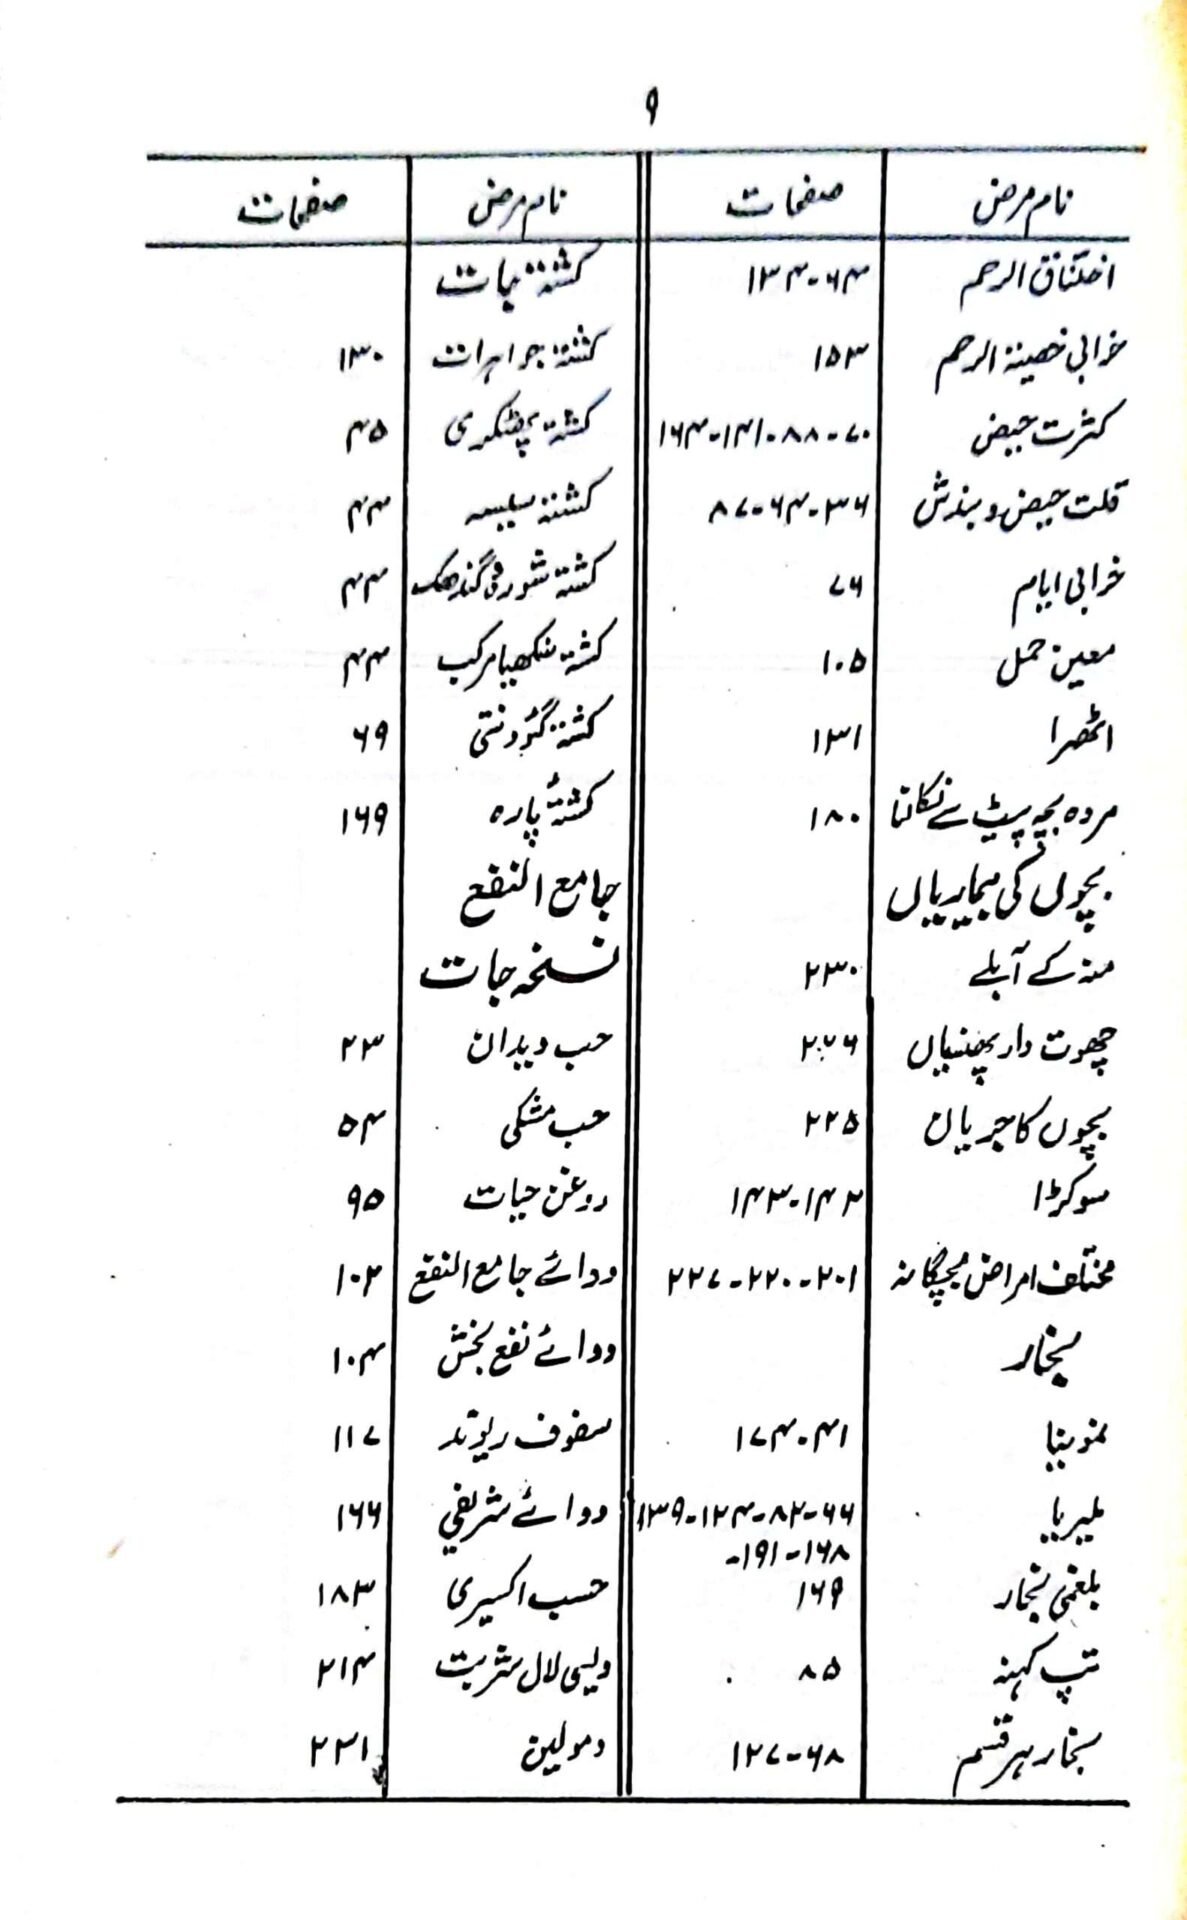 ۹
نام مرض صفحات نام مرض صفحات
اختناق الرحم ۶۴-۱۳۴ کشتہ جات
خرابی خصیۃ الرحم ۱۵۳ کشتہ جواہرات ۱۳۰
کثرت حیض ۷۰-۸۸-۱۴۱-۱۶۴ کشتہ پھٹکری ۴۵
قلت حیض و بندش ۳۶-۶۴-۸۷ کشتہ سیسہ ۴۴
خرابی ایام ۷۶ کشتہ شورہ گندھک ۴۴
معین حمل ۱۰۵ کشتہ سنکھیا مرکب ۴۴
اٹھرا ۱۳۱ کشتہ گئودنتی ۶۹
مردہ بچہ پیٹ سے نکالنا ۱۸۰ کشتۂ پارہ ۱۶۹
بچوں کی بیماریاں جامع النفع
منہ کے آبلے ۲۳۰ نسخہ جات
چھوت دار پھنسیاں ۲۷۶ حب دیدان ۲۳
بچوں کا جریان ۲۲۵ حب مشکی ۵۴
سوکڑا ۱۴۲-۱۴۳ روغن حیات ۹۵
مختلف امراض بچگانہ ۲۰۱-۲۲۰-۲۲۷ دوائے جامع النفع ۱۰۲
بخار دوائے نفع بخش ۱۰۴
نمونیا ۴۱-۱۷۴ سفوف ریوند ۱۱۷
ملیریا ۶۶-۸۲-۱۲۴-۱۳۹ دوائے شریفی ۱۶۶
۱۶۸-۱۹۱-
بلغمی بخار ۱۶۹ حسب اکسیری ۱۸۳
تپ کہنہ ۸۵ دیسی لال شربت ۲۱۴
بخار ہر قسم ۶۸-۱۲۷ دمولین ۲۳۱